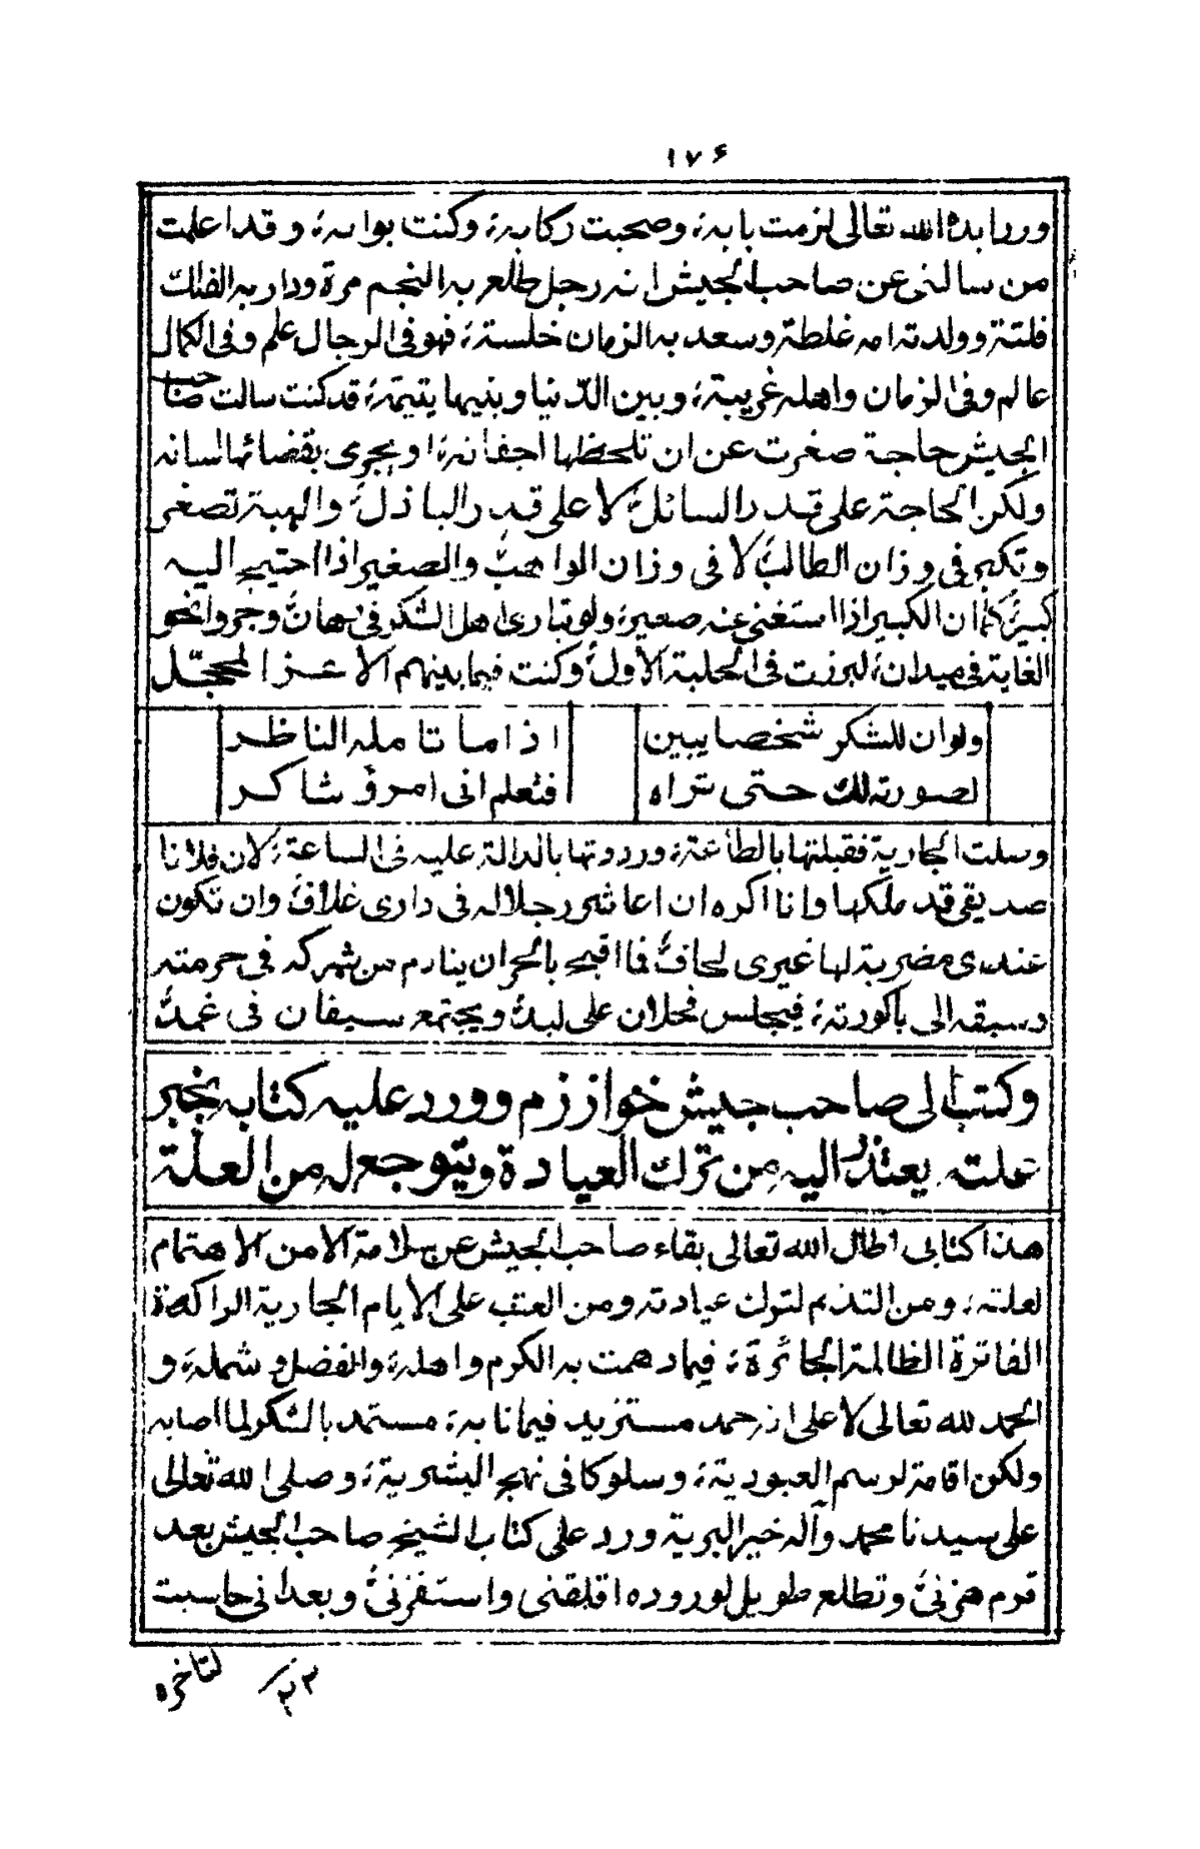 ١٧۶
وردا بده الله تعالى لزمت بابه، وصحبت ركابه، وكنت بوابه، وقد اعلمت
من سالنى عن صاحب الجيش انه رجل طلع به النجم مرة ودار به الفلك
فلتة وولدته امه غلطة وسعد به الزمان خلسة، فهو فى الرجال علم وفى الكمال
عالم وفى الزمان واهله غريبة، وبين الدنيا وبنيها يتيمة، قد كنت سالت صاحب
الجيش حاجة صغرت عن ان تلحظها اجفانه، او يجرى بقضائها لسانه
ولكن الحاجة على قدر السائل، لا على قدر الباذل، والهبة تصغر
وتكبر فى وزان الطالب، لا فى وزان الواهب، والصغير اذا احتيج اليه
كبير، كما ان الكبير اذا استغنى عنه صغير، ولو تبارى اهل الشكر فى رهان، وجروا نحو
الغاية فى ميدان، لبرزت فى الحلبة الاول، وكنت فيما بينهم الاغر المحجل
ولو ان للشكر شخصا يبين اذا ما تامله الناظر
لصورته لك حتى تراه فتعلم انى امرؤ شاكر
وسلت الجارية فقبلتها بالطاعة، ورددتها بالدالة عليه فى الساعة، لان فلانا
صديقى قد ملكها وانا اكره ان اعاشر رجلا له فى دارى غلاف، وان تكون
عندى مضربة لها غيرى لحاف، فما اقبح بالحر ان ينادم من شركه فى حرمته
وسبقه الى باكورته، فيجلس فحلان على لبد، ويجتمع سيفان فى غمد،
وكتب الى صاحب جيش خوارزم وورد عليه كتابه بخبر
علته يعتذر اليه من ترك العيادة ويتوجع له من العلة
هذا كتابى اطال الله تعالى بقاء صاحب الجيش عن سلامة الا من الاهتمام
لعلته، ومن التذمم لترك عيادته ومن العتب على الايام الجارية الراكدة
الفاترة الظالمة الجائرة، فيما دهمت به الكرم واهله، والفضل وشمله، و
الحمد لله تعالى لا على انه حمد مستزيد فيما نابه، مستمد بالشكر لما اصابه
ولكن اقامة لرسم العبودية، وسلوكا فى نهج البشرية، وصلى الله تعالى
على سيدنا محمد وآله خير البرية ورد على كتاب الشيخ صاحب الجيش بعد
قرم هزنى، وتطلع طويل لوروده اقلقنى واستفزنى، وبعد انى حاسبت
لتاخره